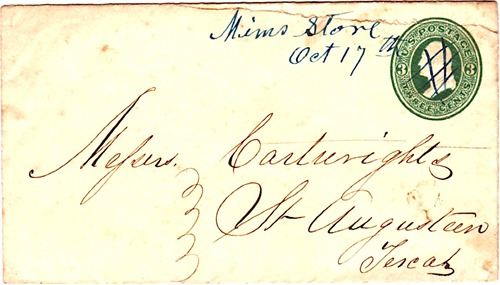 Mims Store
Oct 17th
U.S. POSTAGE
3 3
THREE CENTS
Messrs. Cartwrights
St Augusteen
Texas